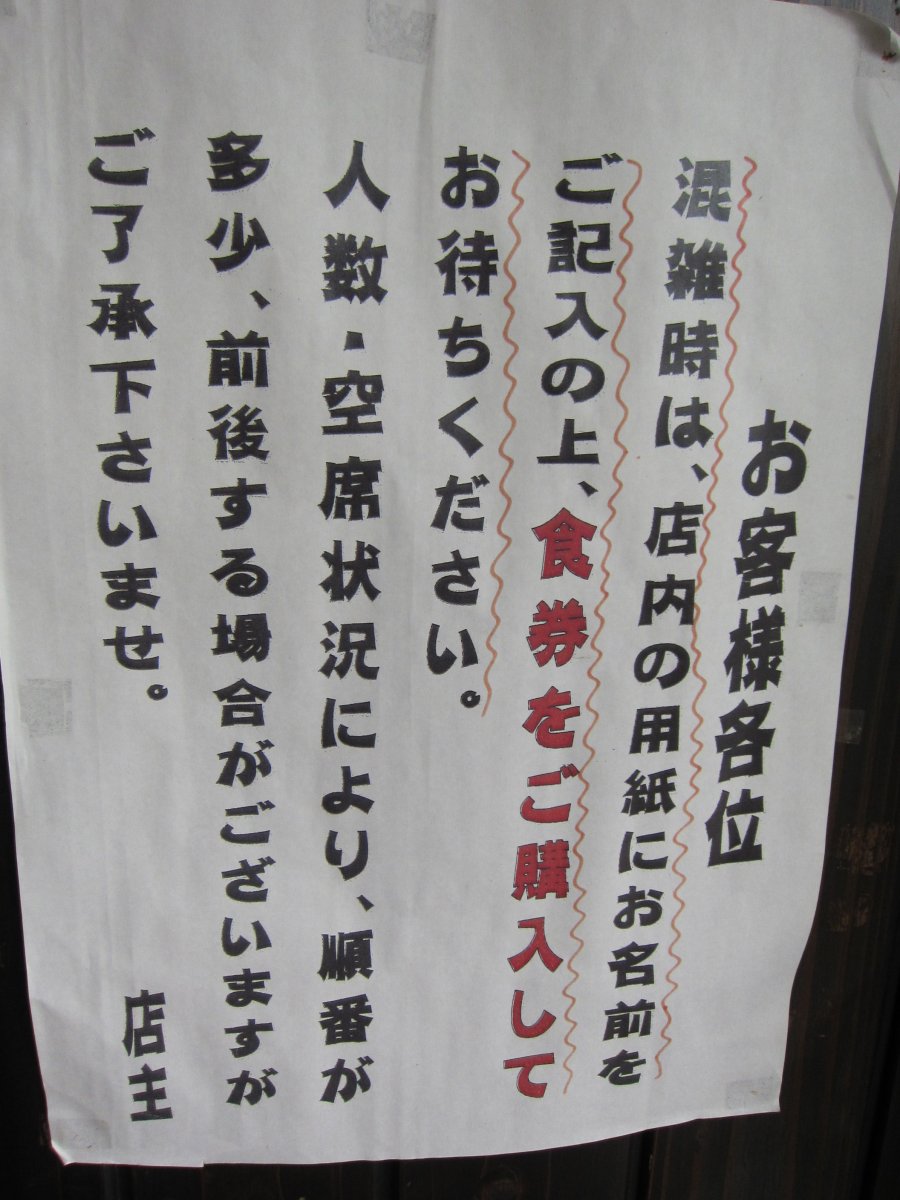 お客様各位
混雑時は、店内の用紙にお名前を
ご記入の上、食券をご購入して
お待ちください。
人数・空席状況により、順番が
多少、前後する場合がございますが
ご了承下さいませ。
店主